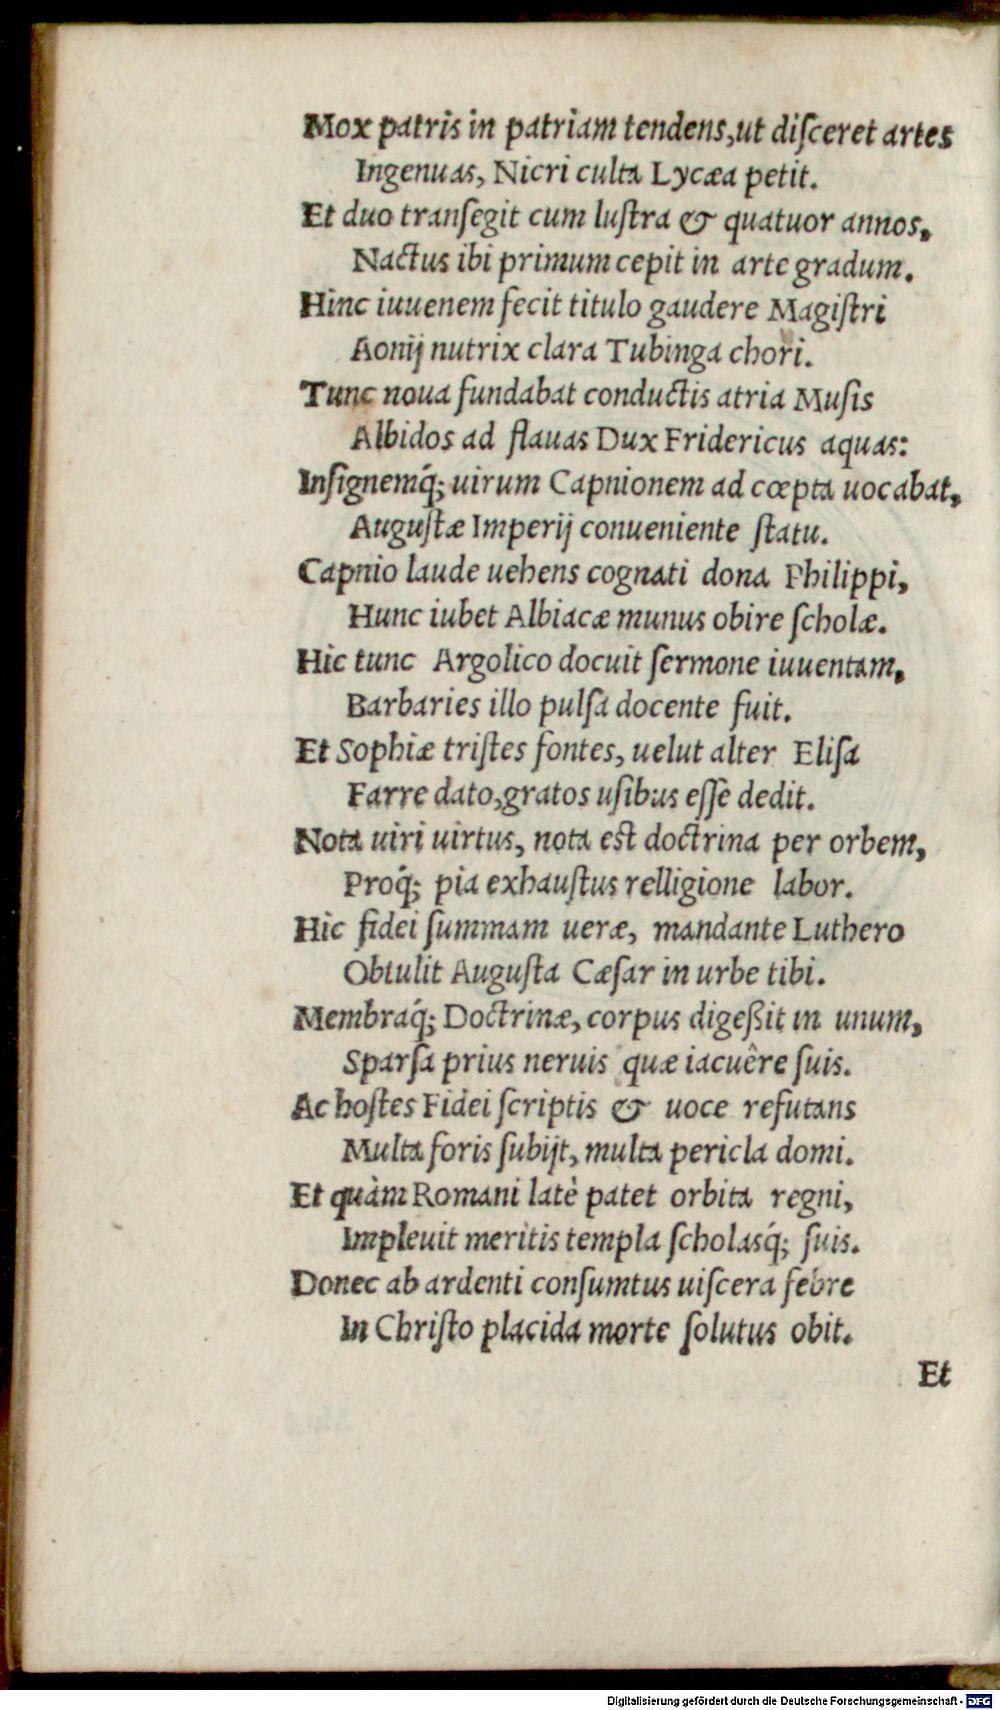 Mox patris in patriam tendens, ut diſceret artes
Ingenuas, Nicri culta Lycæa petit.
Et duo tranſegit cum luſtra & quatuor annos,
Nactus ibi primum cepit in arte gradum.
Hinc iuuenem fecit titulo gaudere Magiſtri
Aonij nutrix clara Tubinga chori.
Tunc noua fundabat conductis atria Muſis
Albidos ad flauas Dux Fridericus aquas:
Inſignemq́; uirum Capnionem ad cœpta uocabat,
Auguſtæ Imperij conueniente ſtatu.
Capnio laude uehens cognati dona Philippi,
Hunc iubet Albiacæ munus obire ſcholæ.
Hic tunc Argolico docuit ſermone iuuentam,
Barbaries illo pulſa docente fuit.
Et Sophiæ triſtes fontes, uelut alter Eliſa
Farre dato, gratos uſibus eſſe dedit.
Nota uiri uirtus, nota est doctrina per orbem,
Proq́; pia exhauſtus relligione labor.
Hic fidei ſummam ueræ, mandante Luthero
Obtulit Auguſta Cæſar in urbe tibi.
Membraq́; Doctrinæ, corpus digeßit in unum,
Sparſa prius neruis quæ iacuêre ſuis.
Ac hoſtes Fidei ſcriptis & uoce refutans
Multa foris ſubijt, multa pericla domi.
Et quàm Romani latè patet orbita regni,
Impleuit meritis templa ſcholasq́; ſuis.
Donec ab ardenti conſumtus uiſcera febre
In Chriſto placida morte ſolutus obit.
Et
Digitalisierung gefördert durch die Deutsche Forschungsgemeinschaft - DFG